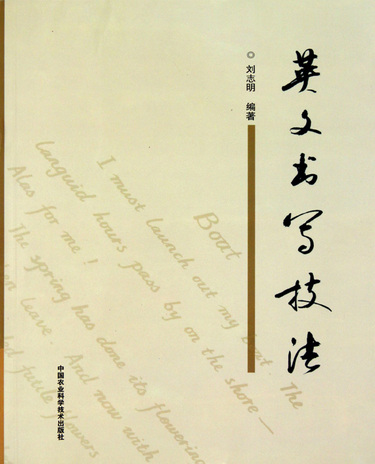 英文书写技法
刘志明 编著
Boat
I must launch out my boat. The
languid hours pass by on the shore—
Alas for me!
The spring has done its flowering
leave. And now with
futile flowers
中国农业科学技术出版社